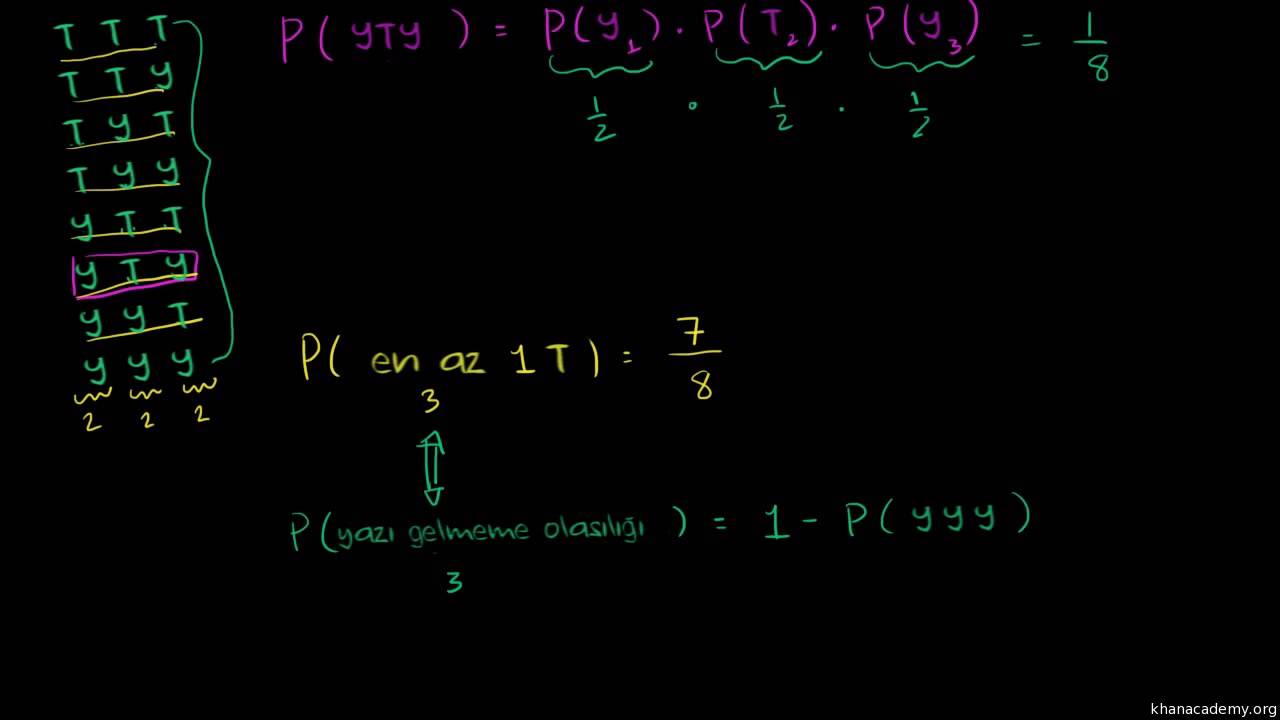 T T T
T T y
T y T
T y y
y T T
y T y
y y T
y y y
2 2 2
P( yTy ) = P(y₁) · P(T₂) · P(y₃) = 1/8
1/2 · 1/2 · 1/2
P( en az 1 T ) = 7/8
3
P(yazı gelmeme olasılığı ) = 1 - P( y y y )
3
khanacademy.org